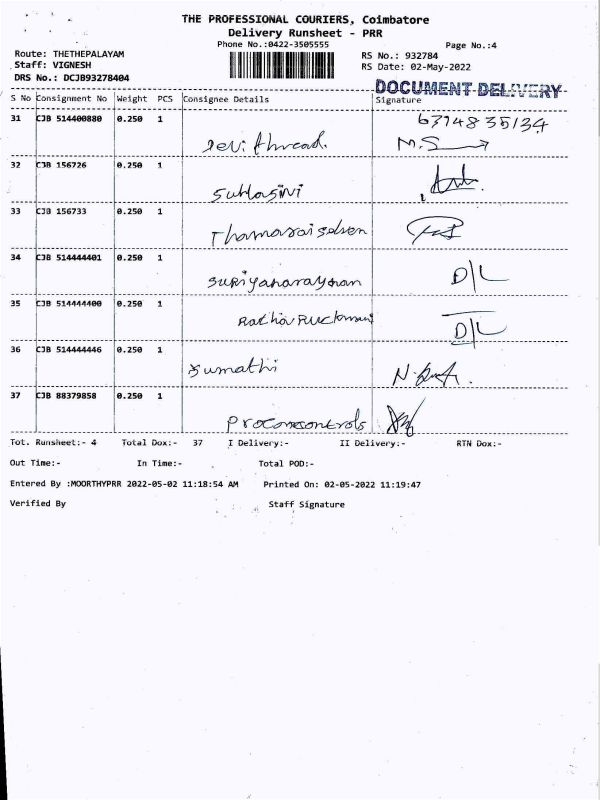 THE PROFESSIONAL COURIERS, Coimbatore
Delivery Runsheet - PRR
Phone No.:0422-3505555
Page No.:4
Route: THETHEPALAYAM
RS No.: 932784
Staff: VIGNESH
RS Date: 02-May-2022
DRS No.: DCJB93278404
DOCUMENT DELIVERY
S No Consignment No Weight PCS Consignee Details Signature
31 CJB 514400880 0.250 1
6374835134
Devi thread. M.S
32 CJB 156726 0.250 1
Suhasini
33 CJB 156733 0.250 1
Thamaraiselven
34 CJB 514444401 0.250 1
Suriyanarayanan D/L
35 CJB 514444400 0.250 1
Radha Ruckmani D/L
36 CJB 514444446 0.250 1
Sumathi
37 CJB 88379858 0.250 1
Proconcontrols
Tot. Runsheet:- 4 Total Dox:- 37 I Delivery:- II Delivery:- RTN Dox:-
Out Time:- In Time:- Total POD:-
Entered By :MOORTHYPRR 2022-05-02 11:18:54 AM Printed On: 02-05-2022 11:19:47
Verified By Staff Signature